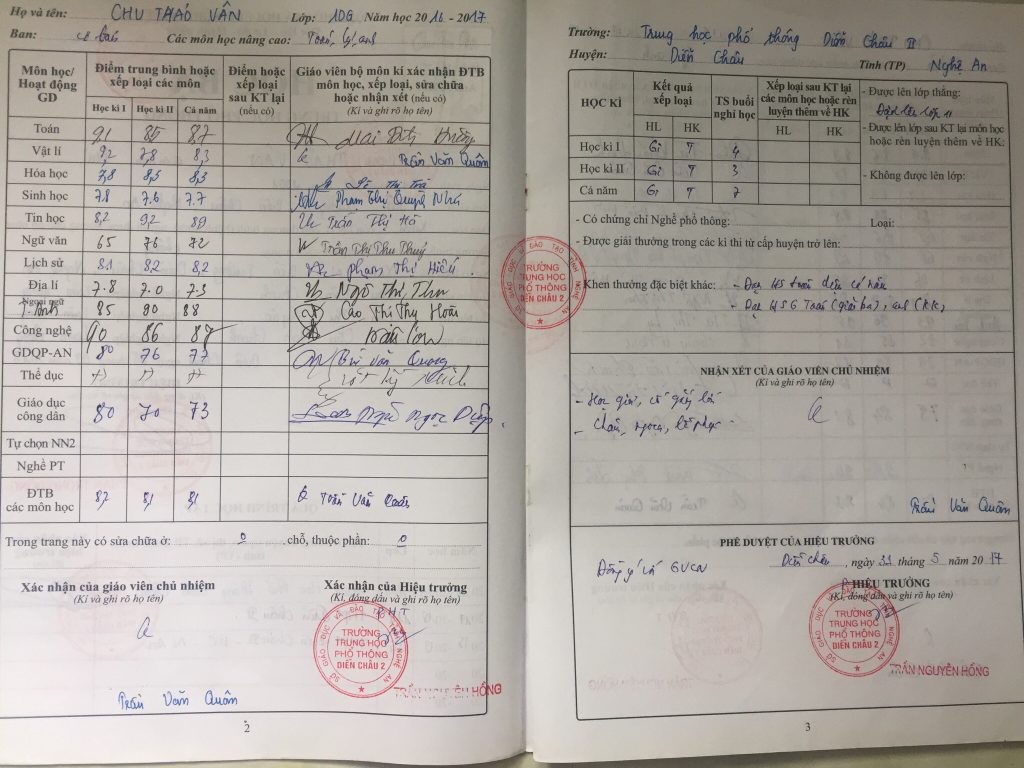 Họ và tên: CHU THẢO VÂN Lớp: 10G Năm học 2016 - 2017
Ban: cơ bản Các môn học nâng cao: Toán, Lý, anh
Môn học/ Hoạt động GD | Điểm trung bình hoặc xếp loại các môn | Điểm hoặc xếp loại sau KT lại (nếu có) | Giáo viên bộ môn kí xác nhận ĐTB môn học, xếp loại, sửa chữa hoặc nhận xét (nếu có) (Kí và ghi rõ họ tên)
Học kì I | Học kì II | Cả năm
Toán 9,1 8,5 8,7
Vật lí 9,2 7,8 8,3 Trần Văn Quân
Hóa học 7,8 8,5 8,3 Lê Thị Trà
Sinh học 7.8 7.6 7.7 Phạm Thị Quỳnh Nhớ
Tin học 8,2 9,2 8,9 Trần Thị Hà
Ngữ văn 65 76 72 Trần Thị Thu Thuỷ
Lịch sử 8.1 8,2 8,2 Phạm Thị Hiếu
Địa lí 7.8 7.0 7.3 Ngô Thị Thu
Ngoại ngữ T.Anh 85 90 88 Cao Thị Thy Hoài
Công nghệ 90 86 87
GDQP-AN 80 76 77 Bùi Văn Quang
Thể dục
Giáo dục công dân 80 70 73 Ngô Ngọc Diệp
Tự chọn NN2
Nghề PT
ĐTB các môn học 8,2 8,1 8,1 Trần Văn Quân
Trong trang này có sửa chữa ở: 0 chỗ, thuộc phần: 0
Xác nhận của giáo viên chủ nhiệm
(Kí và ghi rõ họ tên)
Trần Văn Quân
Xác nhận của Hiệu trưởng
(Kí, đóng dấu và ghi rõ họ tên)
P.H.T
SỞ GIÁO DỤC VÀ ĐÀO TẠO TỈNH NGHỆ AN
TRƯỜNG
TRUNG HỌC
PHỔ THÔNG
DIỄN CHÂU 2
TRẦN NGUYÊN HỒNG
2
Trường: Trung học phổ thông Diễn Châu II
Huyện: Diễn Châu Tỉnh (TP) Nghệ An
HỌC KÌ | Kết quả xếp loại | TS buổi nghỉ học | Xếp loại sau KT lại các môn học hoặc rèn luyện thêm về HK
HL | HK | HL | HK
Học kì I Gi T 4
Học kì II Gi T 3
Cả năm Gi T 7
- Được lên lớp thẳng:
Được lên lớp 11
- Được lên lớp sau KT lại môn học hoặc rèn luyện thêm về HK:
- Không được lên lớp:
- Có chứng chỉ Nghề phổ thông: Loại:
- Được giải thưởng trong các kì thi từ cấp huyện trở lên:
SỞ GIÁO DỤC VÀ ĐÀO TẠO TỈNH NGHỆ AN
TRƯỜNG
TRUNG HỌC
PHỔ THÔNG
DIỄN CHÂU 2
- Khen thưởng đặc biệt khác: - Đạt HS
- Đạt HSG Toán (giải ba), anh (KK)
NHẬN XÉT CỦA GIÁO VIÊN CHỦ NHIỆM
(Kí và ghi rõ họ tên)
- Học giỏi, cố gắng
- Chăm, ngoan, lễ phép
Trần Văn Quân
PHÊ DUYỆT CỦA HIỆU TRƯỞNG
Đồng ý với GVCN
Diễn Châu, ngày 31 tháng 5 năm 2017
P. HIỆU TRƯỞNG
(Kí, đóng dấu và ghi rõ họ tên)
SỞ GIÁO DỤC VÀ ĐÀO TẠO TỈNH NGHỆ AN
TRƯỜNG
TRUNG HỌC
PHỔ THÔNG
DIỄN CHÂU 2
TRẦN NGUYÊN HỒNG
3